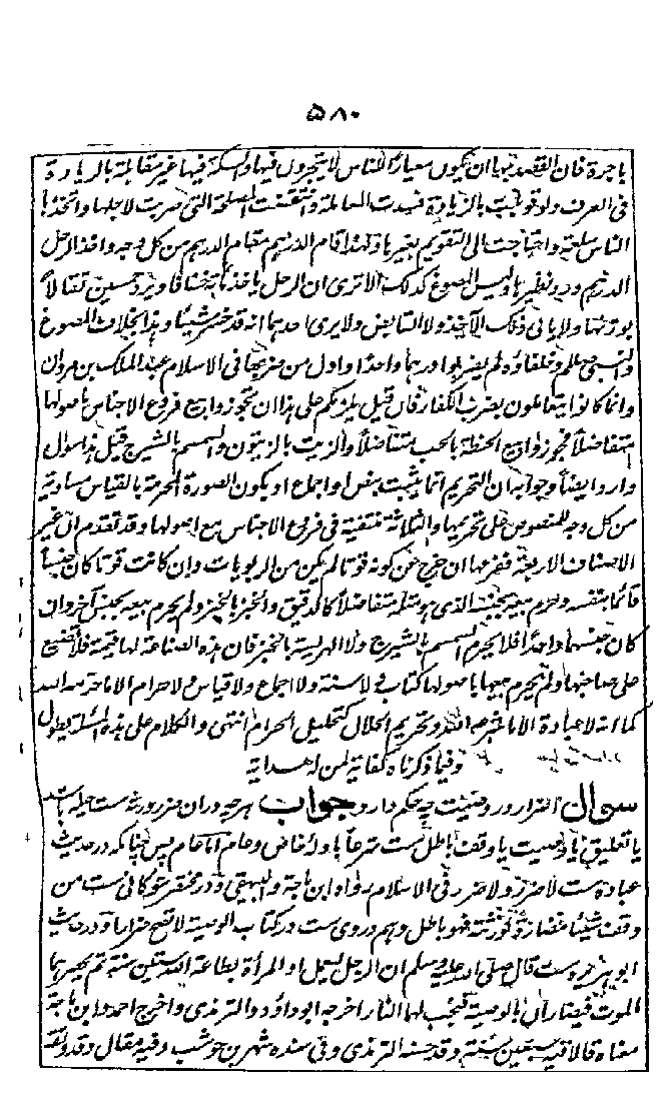 ۵۸۰
باجرة فان القصد بها ان یکون معیارًا للناس لا یتجرون فیها والسکة فیها غیر مقابلة بالزیادة
فی العرف ولو قوبلت بالزیادة فسدت المعاملة وانتقضت المصلحة التی ضربت لاجلها واتخذها
الناس سلعة واحتاجت الی التقویم بغیرها ولهذا قام الدرهم مقام الدرهم من کل وجه واخذ الرجل
الدرهم ورد نظیرها ولیس المصوغ کذلک الا تری ان الرجل یاخذ مائة خفافا ویرد خمسین ثقالاً
بوزنها ولا یابی ذلک الآخذ ولا القابض ولا یری احدهما انه قد خسر شیئا وهذا بخلاف المصوغ
والنبی صلعم وخلفاؤه لم یضربوا درهما واحدا واول من ضربها فی الاسلام عبد الملک بن مروان
وانما کانوا یتعاملون بضرب الکفار فان قیل یلزمکم علی هذا ان تجوزوا بیع فروع الاجناس باصولها
متفاضلاً فجوزوا بیع الحنطة بالحب متفاضلاً والزیت بالزیتون والسمسم بالشیرج قیل هذا سوال
وارد ایضاً وجوابه ان التحریم انما یثبت بنص او اجماع او یکون الصورة المحرمة بالقیاس مساویة
من کل وجه للمنصوص علی تحریمها والثلاثة منتفیة فی فروع الاجناس مع اصولها وقد تقدم ان غیر
الاصناف الاربعة ففرعها ان خرج عن کونه قوتا لم یکن من الربویات وان کانت قوتا کان جنسا
قائما بنفسه وحرم بیعه بجنسه الذی هو مثله متفاضلاً کالدقیق والخبز بالخبز ولم یحرم بیعه بجنس آخر وان
کان جنسهما واحدا فلا یحرم السمسم بالشیرج ولا الهریسة بالخبز فان هذه الصناعة لها قیمة فلا تضیع
علی صاحبها ولم یحرم بیعها باصولها کتاب ولا سنة ولا اجماع ولا قیاس ولا حرام الا ما حرمه الله
کما انه لا عبادة الا ما شرعه الله وتحریم الحلال کتحلیل الحرام انتهی والکلام علی هذه المسئلة یطول
وفیما ذکرناه کفایة لمن له هدایة
سوال اضرار در وصیت چه حکم دارد جواب هر چه دران ضرر ورثه ست حیله باشد
یا تعلیق یا وصیت یا وقف باطل ست شرعاً باوله خاص وعام اما عام پس چنانکه در حدیث
عباده ست لا ضرر ولا ضرر فی الاسلام رواه ابن ماجة والبیهقی ودر مختصر شوکانی ست من
وقف شیئا مضارة لورثته فهو باطل وهم در وی ست در کتاب الوصیة لا تصح ضرارا ودر حدیث
ابو هریره ست قال صلی الله علیه وسلم ان الرجل لیعمل او المرأة بطاعة الله ستین سنة ثم یحضرهما
الموت فیضاران بالوصیة فتجب لهما النار اخرجه ابو داؤد والترمذی واخرج احمد وابن ماجة
معناه قالا فیه سبعین سنة وقد حسنه الترمذی وفی سنده شهر بن حوشب وفیه مقال وقد وثقه